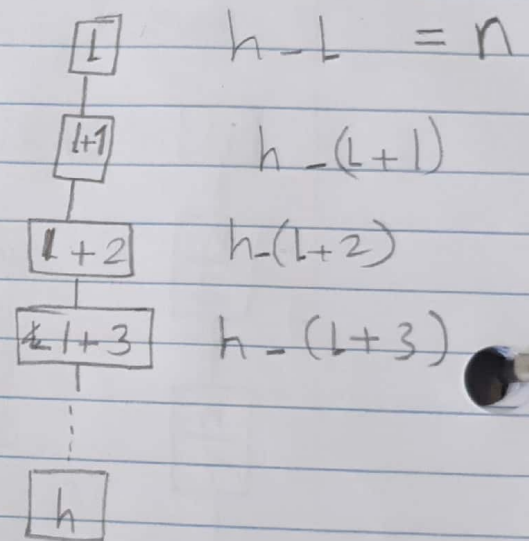 L h - L = n
l+1 h - (L + 1)
L + 2 h - (L+2)
l + 3 h - (L + 3)
h